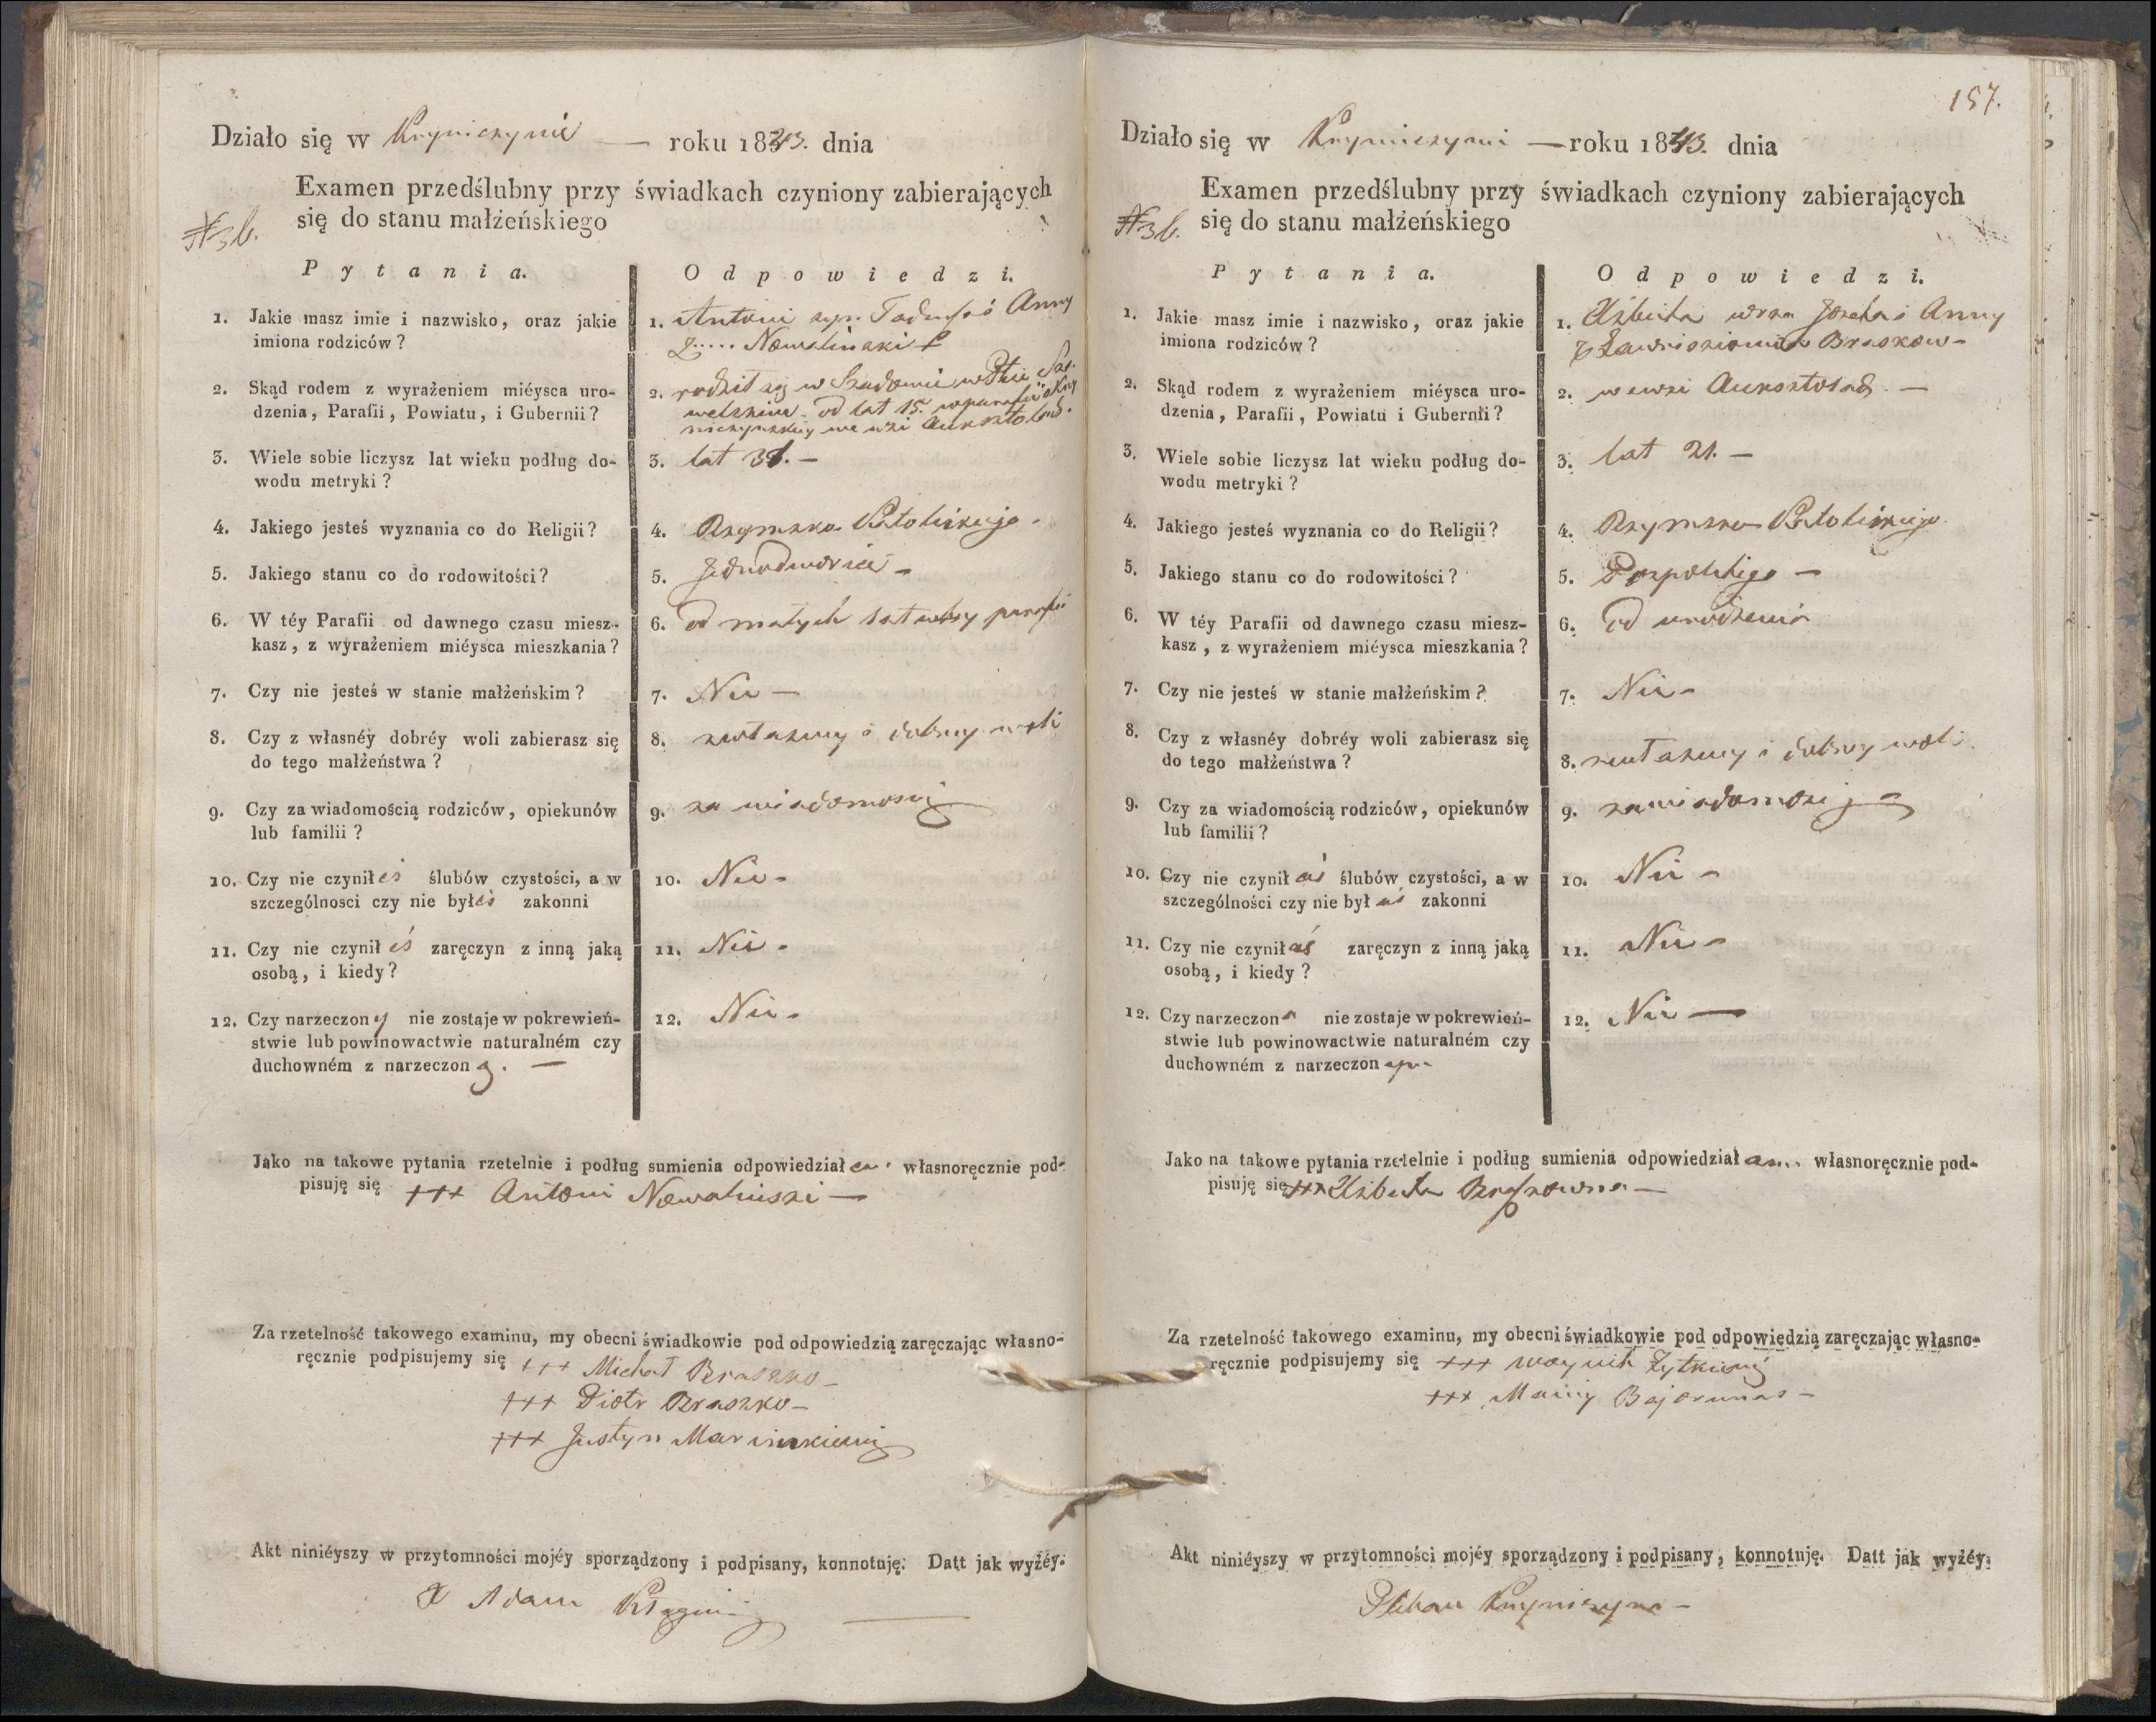 Działo się w Kryniczynie — roku 1843. dnia
Examen przedślubny przy świadkach czyniony zabierających
się do stanu małżeńskiego
N 36.
Pytania.
Odpowiedzi.
1. Jakie masz imie i nazwisko, oraz jakie
imiona rodziców?
1. Antoni syn Tadeusza i Anny
Z..... Nowaliński
2. Skąd rodem z wyrażeniem miéysca uro-
dzenia, Parafii, Powiatu, i Gubernii?
2. rodził się w Szadowie w Pcie Sza-
welskim. od lat 15. w parafii Kry
niczynskiey we wsi Auksztolad.
3. Wiele sobie liczysz lat wieku podług do-
wodu metryki?
3. lat 31. —
4. Jakiego jesteś wyznania co do Religii?
4. Rzymsko Katolickiego.
5. Jakiego stanu co do rodowitości?
5. Jednodworiec —
6. W téy Parafii od dawnego czasu miesz-
kasz, z wyrażeniem miéysca mieszkania?
6. od małych lat w tey parafii
7. Czy nie jesteś w stanie małżeńskim?
7. Nie —
8. Czy z własnéy dobréy woli zabierasz się
do tego małżeństwa?
8. z własney i dobrey woli
9. Czy za wiadomością rodziców, opiekunów
lub familii?
9. za wiadomością
10. Czy nie czyniłeś ślubów czystości, a w
szczególnosci czy nie byłeś zakonni
10. Nie -
11. Czy nie czyniłeś zaręczyn z inną jaką
osobą, i kiedy?
11. Nie -
12. Czy narzeczony nie zostaje w pokrewień-
stwie lub powinowactwie naturalném czy
duchowném z narzeczoną. —
12. Nie -
Jako na takowe pytania rzetelnie i podług sumienia odpowiedziałem własnoręcznie pod-
pisuję się +++ Antoni Nowaliński —
Za rzetelność takowego examinu, my obecni świadkowie pod odpowiedzią zaręczając własno-
ręcznie podpisujemy się +++ Michał Braszko —
+++ Piotr Braszko —
+++ Justyn Marcinkiewicz
Akt niniéyszy w przytomności mojéy sporządzony i podpisany, konnotuję. Datt jak wyżéy.
X Adam
157.
Działo się w Kryniczynie — roku 1843. dnia
Examen przedślubny przy świadkach czyniony zabierających
się do stanu małżeńskiego
N 36.
Pytania.
Odpowiedzi.
1. Jakie masz imie i nazwisko, oraz jakie
imiona rodziców?
1. Elżbieta córka Józefa i Anny
z Braszkow —
2. Skąd rodem z wyrażeniem miéysca uro-
dzenia, Parafii, Powiatu i Gubernii?
2. we wsi Auksztolad. —
3. Wiele sobie liczysz lat wieku podług do-
wodu metryki?
3. lat 21. —
4. Jakiego jesteś wyznania co do Religii?
4. Rzymsko Katolickiego.
5. Jakiego stanu co do rodowitości?
5. Pospolitego —
6. W téy Parafii od dawnego czasu miesz-
kasz, z wyrażeniem miéysca mieszkania?
6. od urodzenia
7. Czy nie jesteś w stanie małżeńskim?
7. Nie -
8. Czy z własnéy dobréy woli zabierasz się
do tego małżeństwa?
8. z własney i dobrey woli
9. Czy za wiadomością rodziców, opiekunów
lub familii?
9. za wiadomością
10. Czy nie czyniłaś ślubów czystości, a w
szczególności czy nie byłaś zakonni
10. Nie -
11. Czy nie czyniłaś zaręczyn z inną jaką
osobą, i kiedy?
11. Nie -
12. Czy narzeczona nie zostaje w pokrewień-
stwie lub powinowactwie naturalném czy
duchowném z narzeczonym
12. Nie —
Jako na takowe pytania rzetelnie i podług sumienia odpowiedziałam własnoręcznie pod-
pisuję się +++ Elżbieta Braszkowna —
Za rzetelność takowego examinu, my obecni świadkowie pod odpowiedzią zaręczając własno-
ręcznie podpisujemy się +++ Woyciech Żytkiewicz
+++ Maciey Bajorunas —
Akt niniéyszy w przytomności mojéy sporządzony i podpisany, konnotuję. Datt jak wyżéy.
Pleban